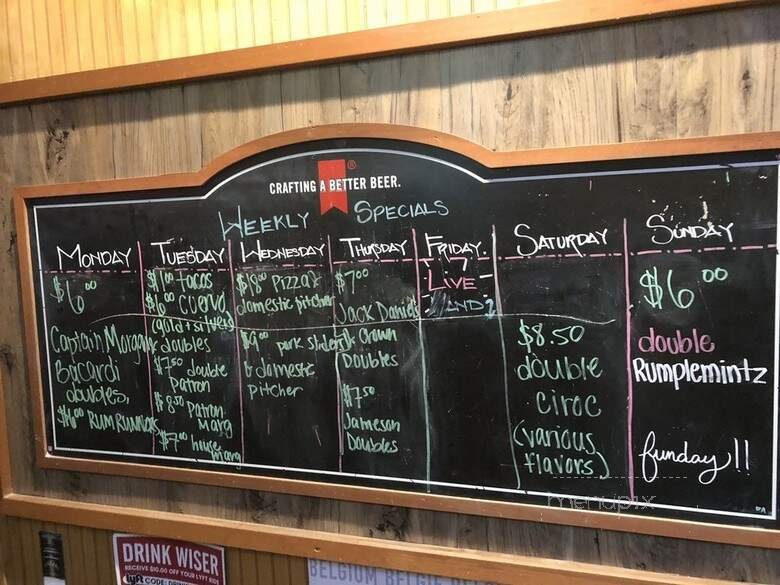 CRAFTING A BETTER BEER.
WEEKLY SPECIALS
MONDAY
$6.00
Captain Morgan
Bacardi
doubles,
$6.00 RUM RUNNERS
TUESDAY
$1.00 tacos
$6.00 cuervo
(gold + silver)
doubles
$7.50 double
Patron
$8.50 Patron
Marg
$7.00 house
marg
WEDNESDAY
$18.00 Pizza &
domestic pitcher
pork sliders
& domestic
pitcher
THURSDAY
$7.00
Jack Daniels
& Crown
Doubles
$7.50
Jameson
Doubles
FRIDAY
LIVE
SATURDAY
$8.50
double
CIROC
(various
flavors)
SUNDAY
$6.00
double
Rumplemintz
funday!!
menupix
DRINK WISER
RECEIVE $10.00 OFF YOUR LYFT RIDE
lyft CODE:
BELGIUM BELGIUM